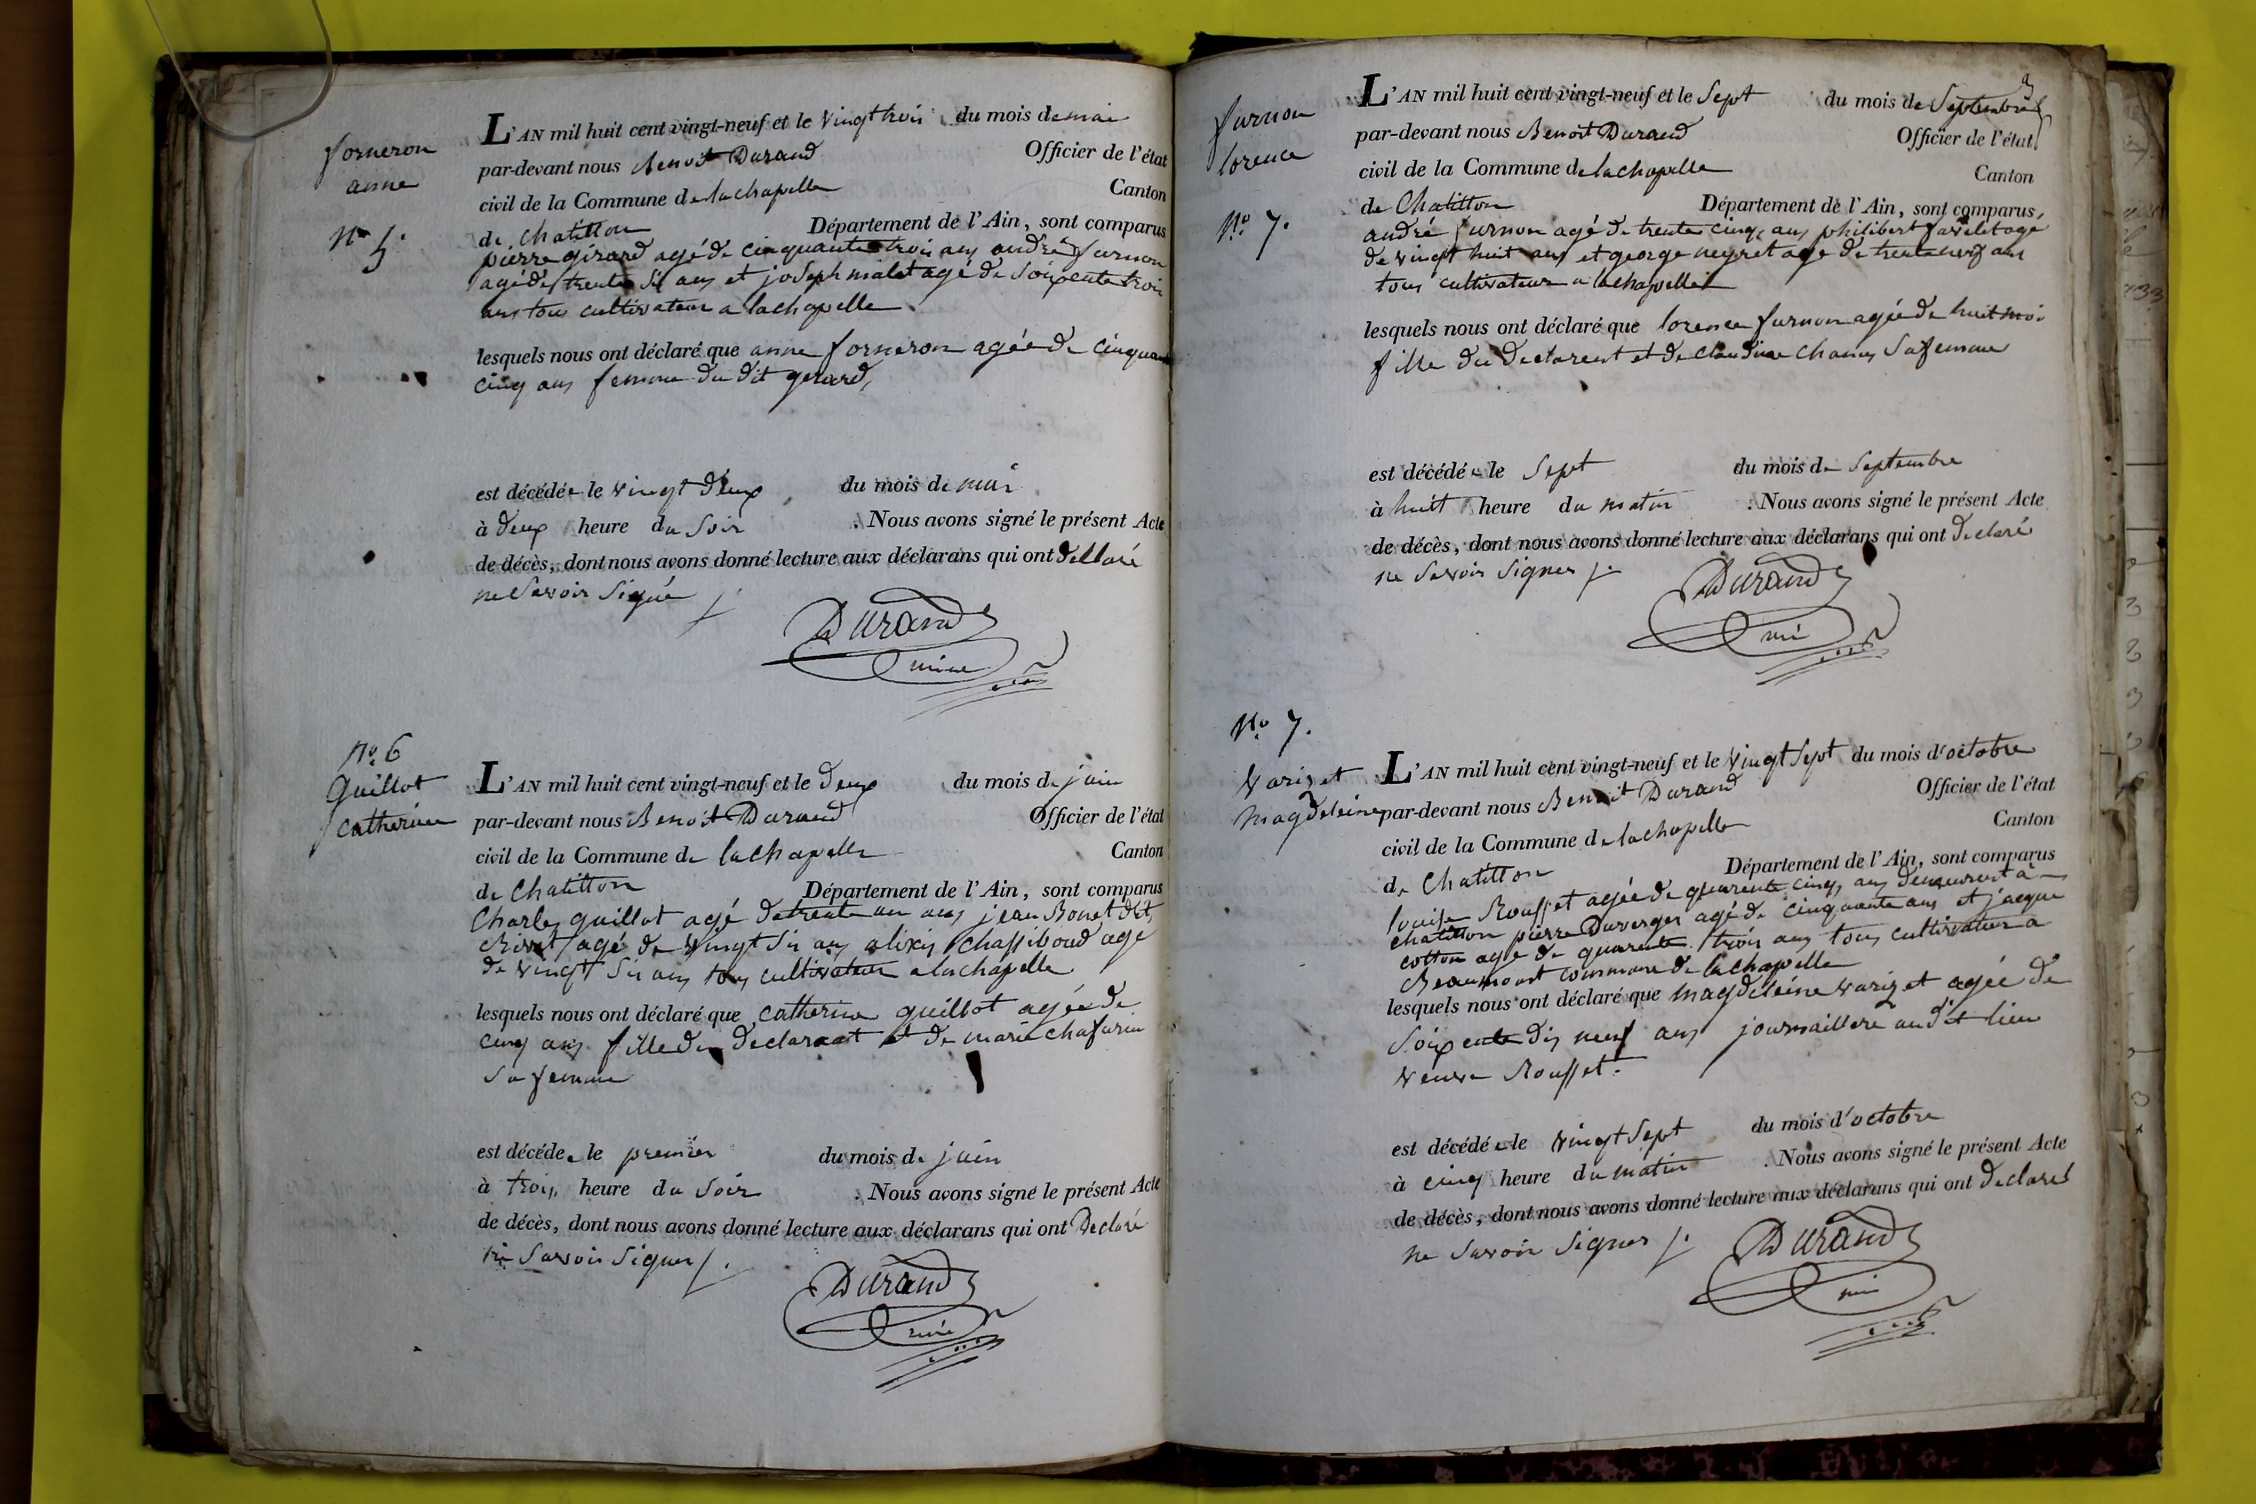 forneron
anne
N° 5.
L'AN mil huit cent vingt-neuf et le vingt trois du mois de mai
par-devant nous Benoit Durand Officier de l'état
civil de la Commune de lachapelle Canton
de Chatillon Département de l'Ain, sont comparus
pierre girard agé de cinquante trois ans andré furnon
agé de trente six ans et joseph malet agé de soixente trois
ans tous cultivateur a lachapelle
lesquels nous ont déclaré que anne forneron agée de cinquante
cinq ans femme du dit gerard
est décédée le vingt deux du mois de mai
à deux heure du soir . Nous avons signé le présent Acte
de décès, dont nous avons donné lecture aux déclarans qui ont déllaré
ne savoir signé
Durand
maire
N° 6
Guillot
catherine
L'AN mil huit cent vingt-neuf et le deux du mois de juin
par-devant nous Benoit Durand Officier de l'état
civil de la Commune de lachapelle Canton
de Chatillon Département de l'Ain, sont comparus
Charles guillot agé de trente un ans jean Bonet dit
agé de vingt six ans alixis chassiboud age
de vingt six ans tous cultivateur a lachapelle
lesquels nous ont déclaré que catherine guillot agée de
cinq ans fille du declarant et de marie chafurin
sa femme
est décédée le premier du mois de juin
à trois heure du soir . Nous avons signé le présent Acte
de décès, dont nous avons donné lecture aux déclarans qui ont declaré
ne savoir signer
Durand
mire
furnon
lorence
N° 7.
L'AN mil huit cent vingt-neuf et le sept du mois de septembre
par-devant nous Benoit Durand Officier de l'état
civil de la Commune de lachapelle Canton
de Chatillon Département de l'Ain, sont comparus,
andré furnon agé de trente cinq ans philibert favelet agé
de vingt huit ans et george neyret age de trente neuf ans
tous cultivateur a lachapelle
lesquels nous ont déclaré que lorence furnon agée de huit moi
fille du declarent et de claudine sa femme
est décédée le sept du mois de septembre
à huit heure du matin . Nous avons signé le présent Acte
de décès, dont nous avons donné lecture aux déclarans qui ont declaré
ne savoir signer
Durand
N° 7.
varizet
magdeleine
L'AN mil huit cent vingt-neuf et le vingt sept du mois d'octobre
par-devant nous Benoit Durand Officier de l'état
civil de la Commune de lachapelle Canton
de Chatillon Département de l'Ain, sont comparus
louise Rousset agée de quarente cinq ans demeurent à
chatillon pierre Duverger agé de cinquante ans et jacque
cotton age de quarente trois ans tous cultivateur a
Beaumont commune de lachapelle
lesquels nous ont déclaré que magdeleine varizet agée de
soixente dix neuf ans journaillere au dit lieu
veuve Rousset.
est décédée le vingt sept du mois d'octobre
à cinq heure du matin . Nous avons signé le présent Acte
de décès, dont nous avons donné lecture aux déclarans qui ont declaré
ne savoir signer
Durand